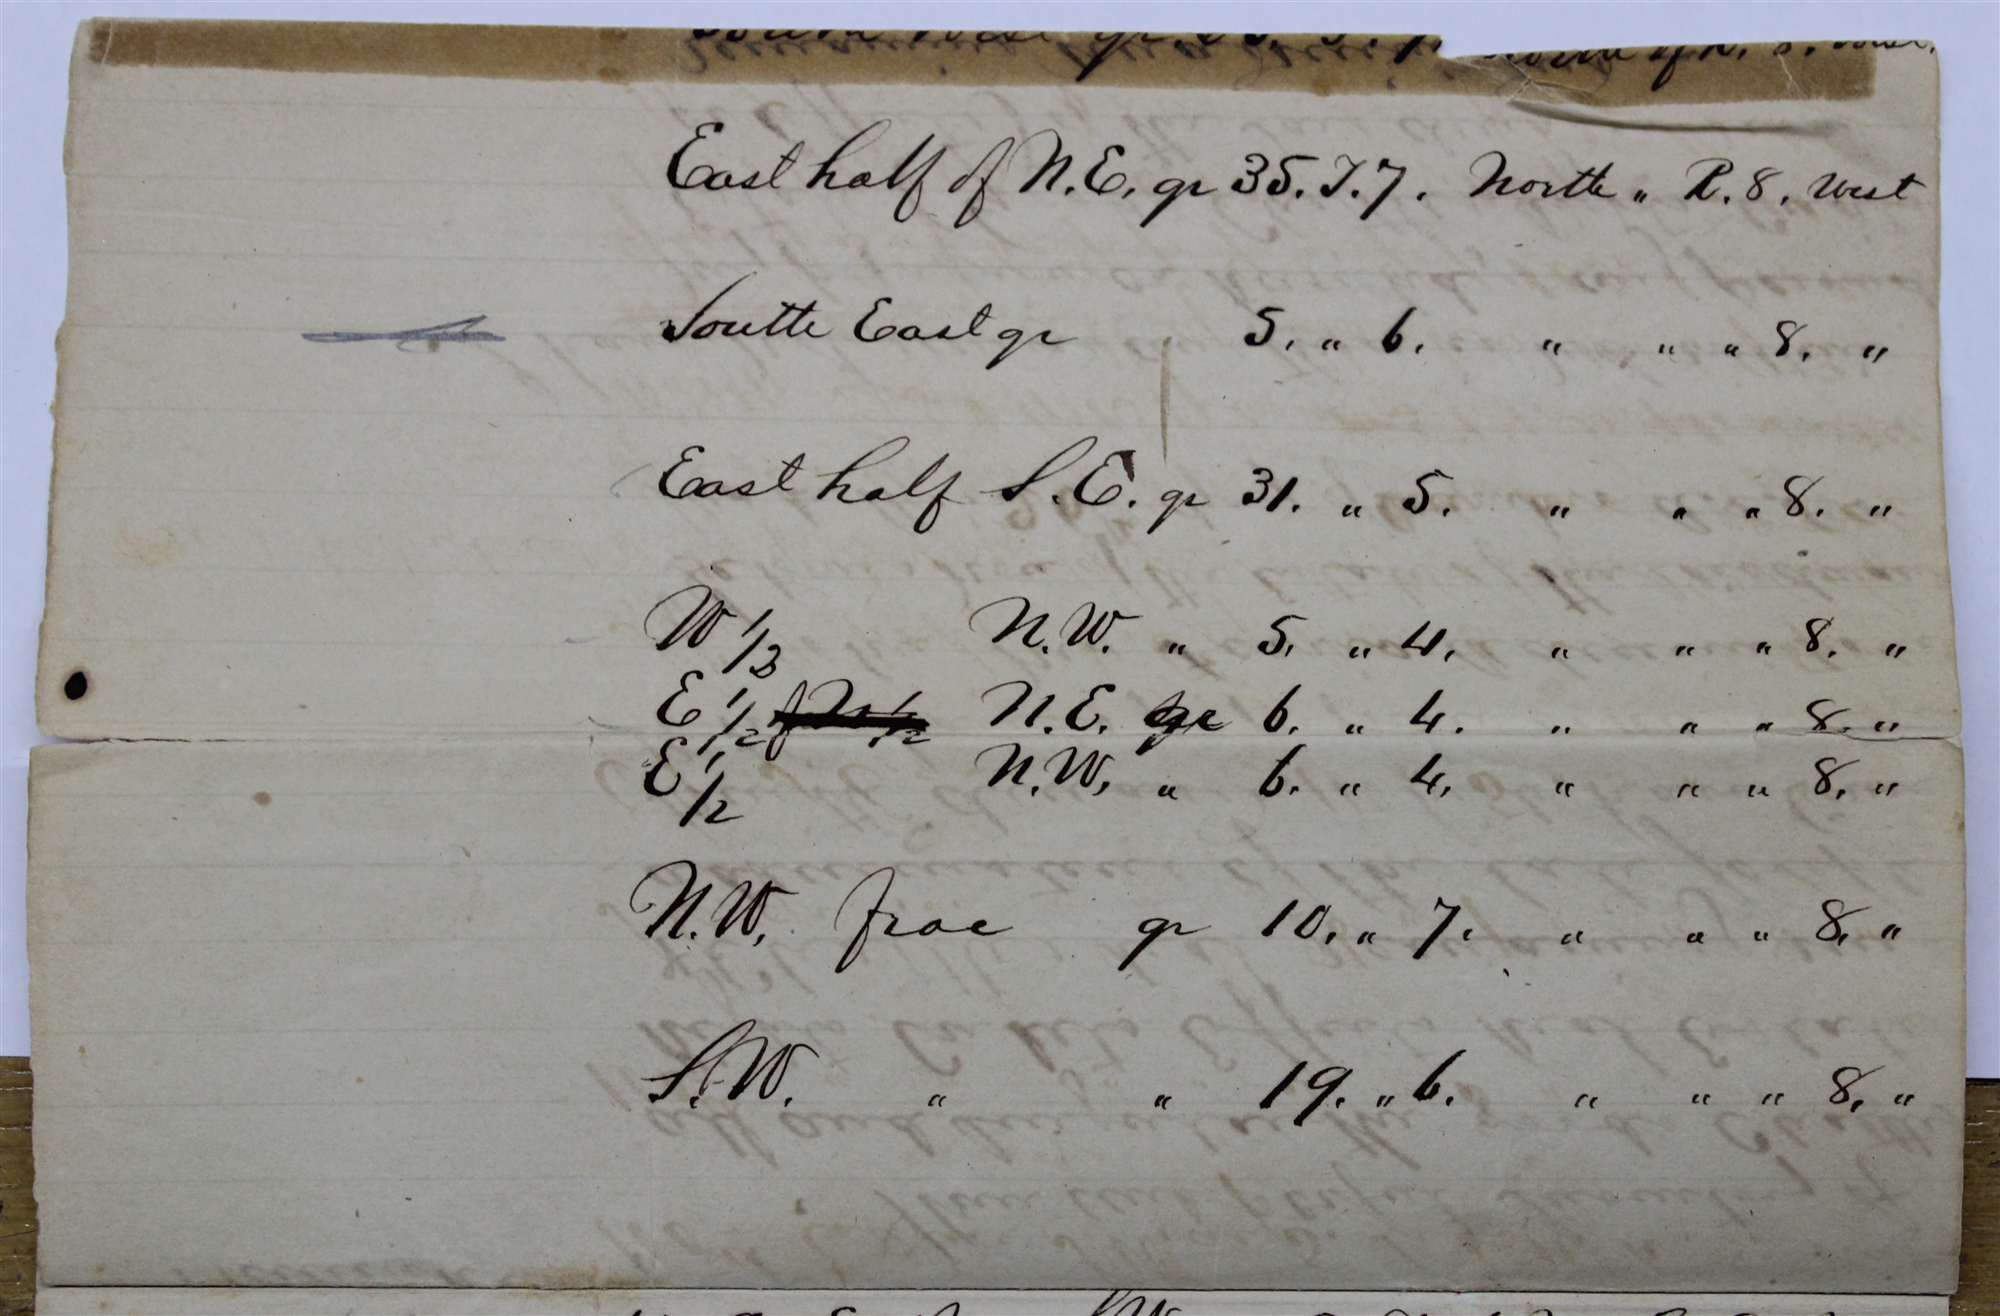 East half of N.E. qr 35. T. 7. North „ R. 8. West
South East qr 5. „ 6. „ „ „ 8. „
East half S.E. qr 31. „ 5. „ „ „ 8. „
W 1/3 N.W. „ 5. „ 4. „ „ „ 8. „
E 1/2 N.E. qr 6. „ 4. „ „ „ 8. „
E 1/2 N.W. „ 6. „ 4. „ „ „ 8. „
N.W. frac qr 10. „ 7. „ „ „ 8. „
S.W. „ „ 19. „ 6. „ „ „ 8. „